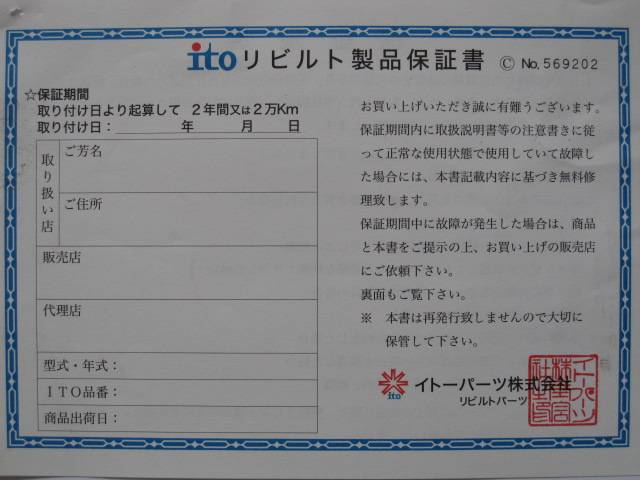 ito リビルト製品保証書 Ⓒ No. 569202
☆保証期間
取り付け日より起算して 2年間又は2万Km
取り付け日： 年 月 日
取り扱い店
ご芳名
ご住所
販売店
代理店
型式・年式：
ＩＴＯ品番：
商品出荷日：
お買い上げいただき誠に有難うございます。
保証期間内に取扱説明書等の注意書きに従
って正常な使用状態で使用していて故障し
た場合には、本書記載内容に基づき無料修
理致します。
保証期間中に故障が発生した場合は、商品
と本書をご提示の上、お買い上げの販売店
にご依頼下さい。
裏面もご覧下さい。
※ 本書は再発行致しませんので大切に
保管して下さい。
ito イトーパーツ株式会社
リビルトパーツ